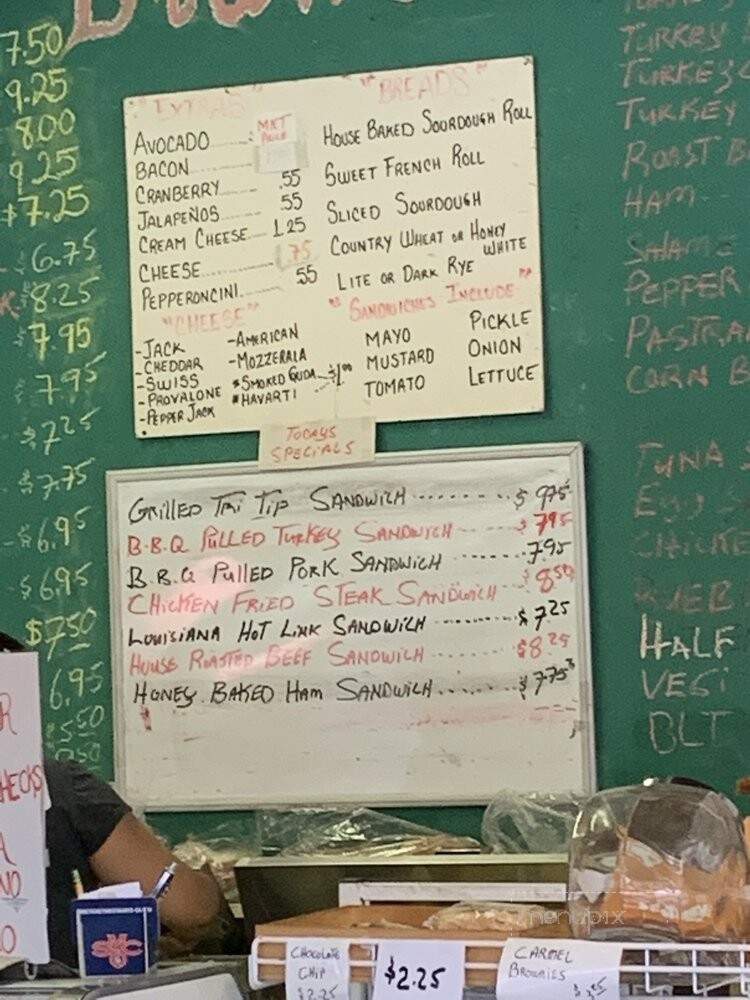 7.50
9.25
8.00
9.25
$7.25
6.75
8.25
7.95
7.95
$7.25
$7.75
$6.95
$6.95
$7.50
6.95
5.50
"EXTRAS"
AVOCADO MKT PRICE
BACON
CRANBERRY .55
JALAPEÑOS .55
CREAM CHEESE 1.25
CHEESE .75
PEPPERONCINI .55
"CHEESE"
-JACK
-CHEDDAR
-SWISS
-PROVALONE
-PEPPER JACK
-AMERICAN
-MOZZERALA
*SMOKED GUDA
*HAVARTI
$1.00
"BREADS"
HOUSE BAKED SOURDOUGH ROLL
SWEET FRENCH ROLL
SLICED SOURDOUGH
COUNTRY WHEAT OR HONEY WHITE
LITE OR DARK RYE
"SANDWICHES INCLUDE"
MAYO PICKLE
MUSTARD ONION
TOMATO LETTUCE
TODAYS
SPECIALS
GRILLED TRI TIP SANDWICH ------- $ 9.75
B.B.Q PULLED TURKEY SANDWICH ------ $ 7.95
B.B.Q PULLED PORK SANDWICH ------ 7.95
CHICKEN FRIED STEAK SANDWICH ---- $ 8.50
LOUISIANA HOT LINK SANDWICH -------- $ 7.25
HOUSE ROASTED BEEF SANDWICH ...... $8.25
HONEY BAKED HAM SANDWICH ....... $ 7.75
TURKEY
TURKEY
TURKEY
ROAST B
HAM
PEPPER
PASTRA
CORN B
TUNA
EGG
CHICKE
HALF
VEGI
BLT
HECKS
CHOCOLATE
CHIP
$2.25
$2.25
CARMEL
BROWNIES
menupix